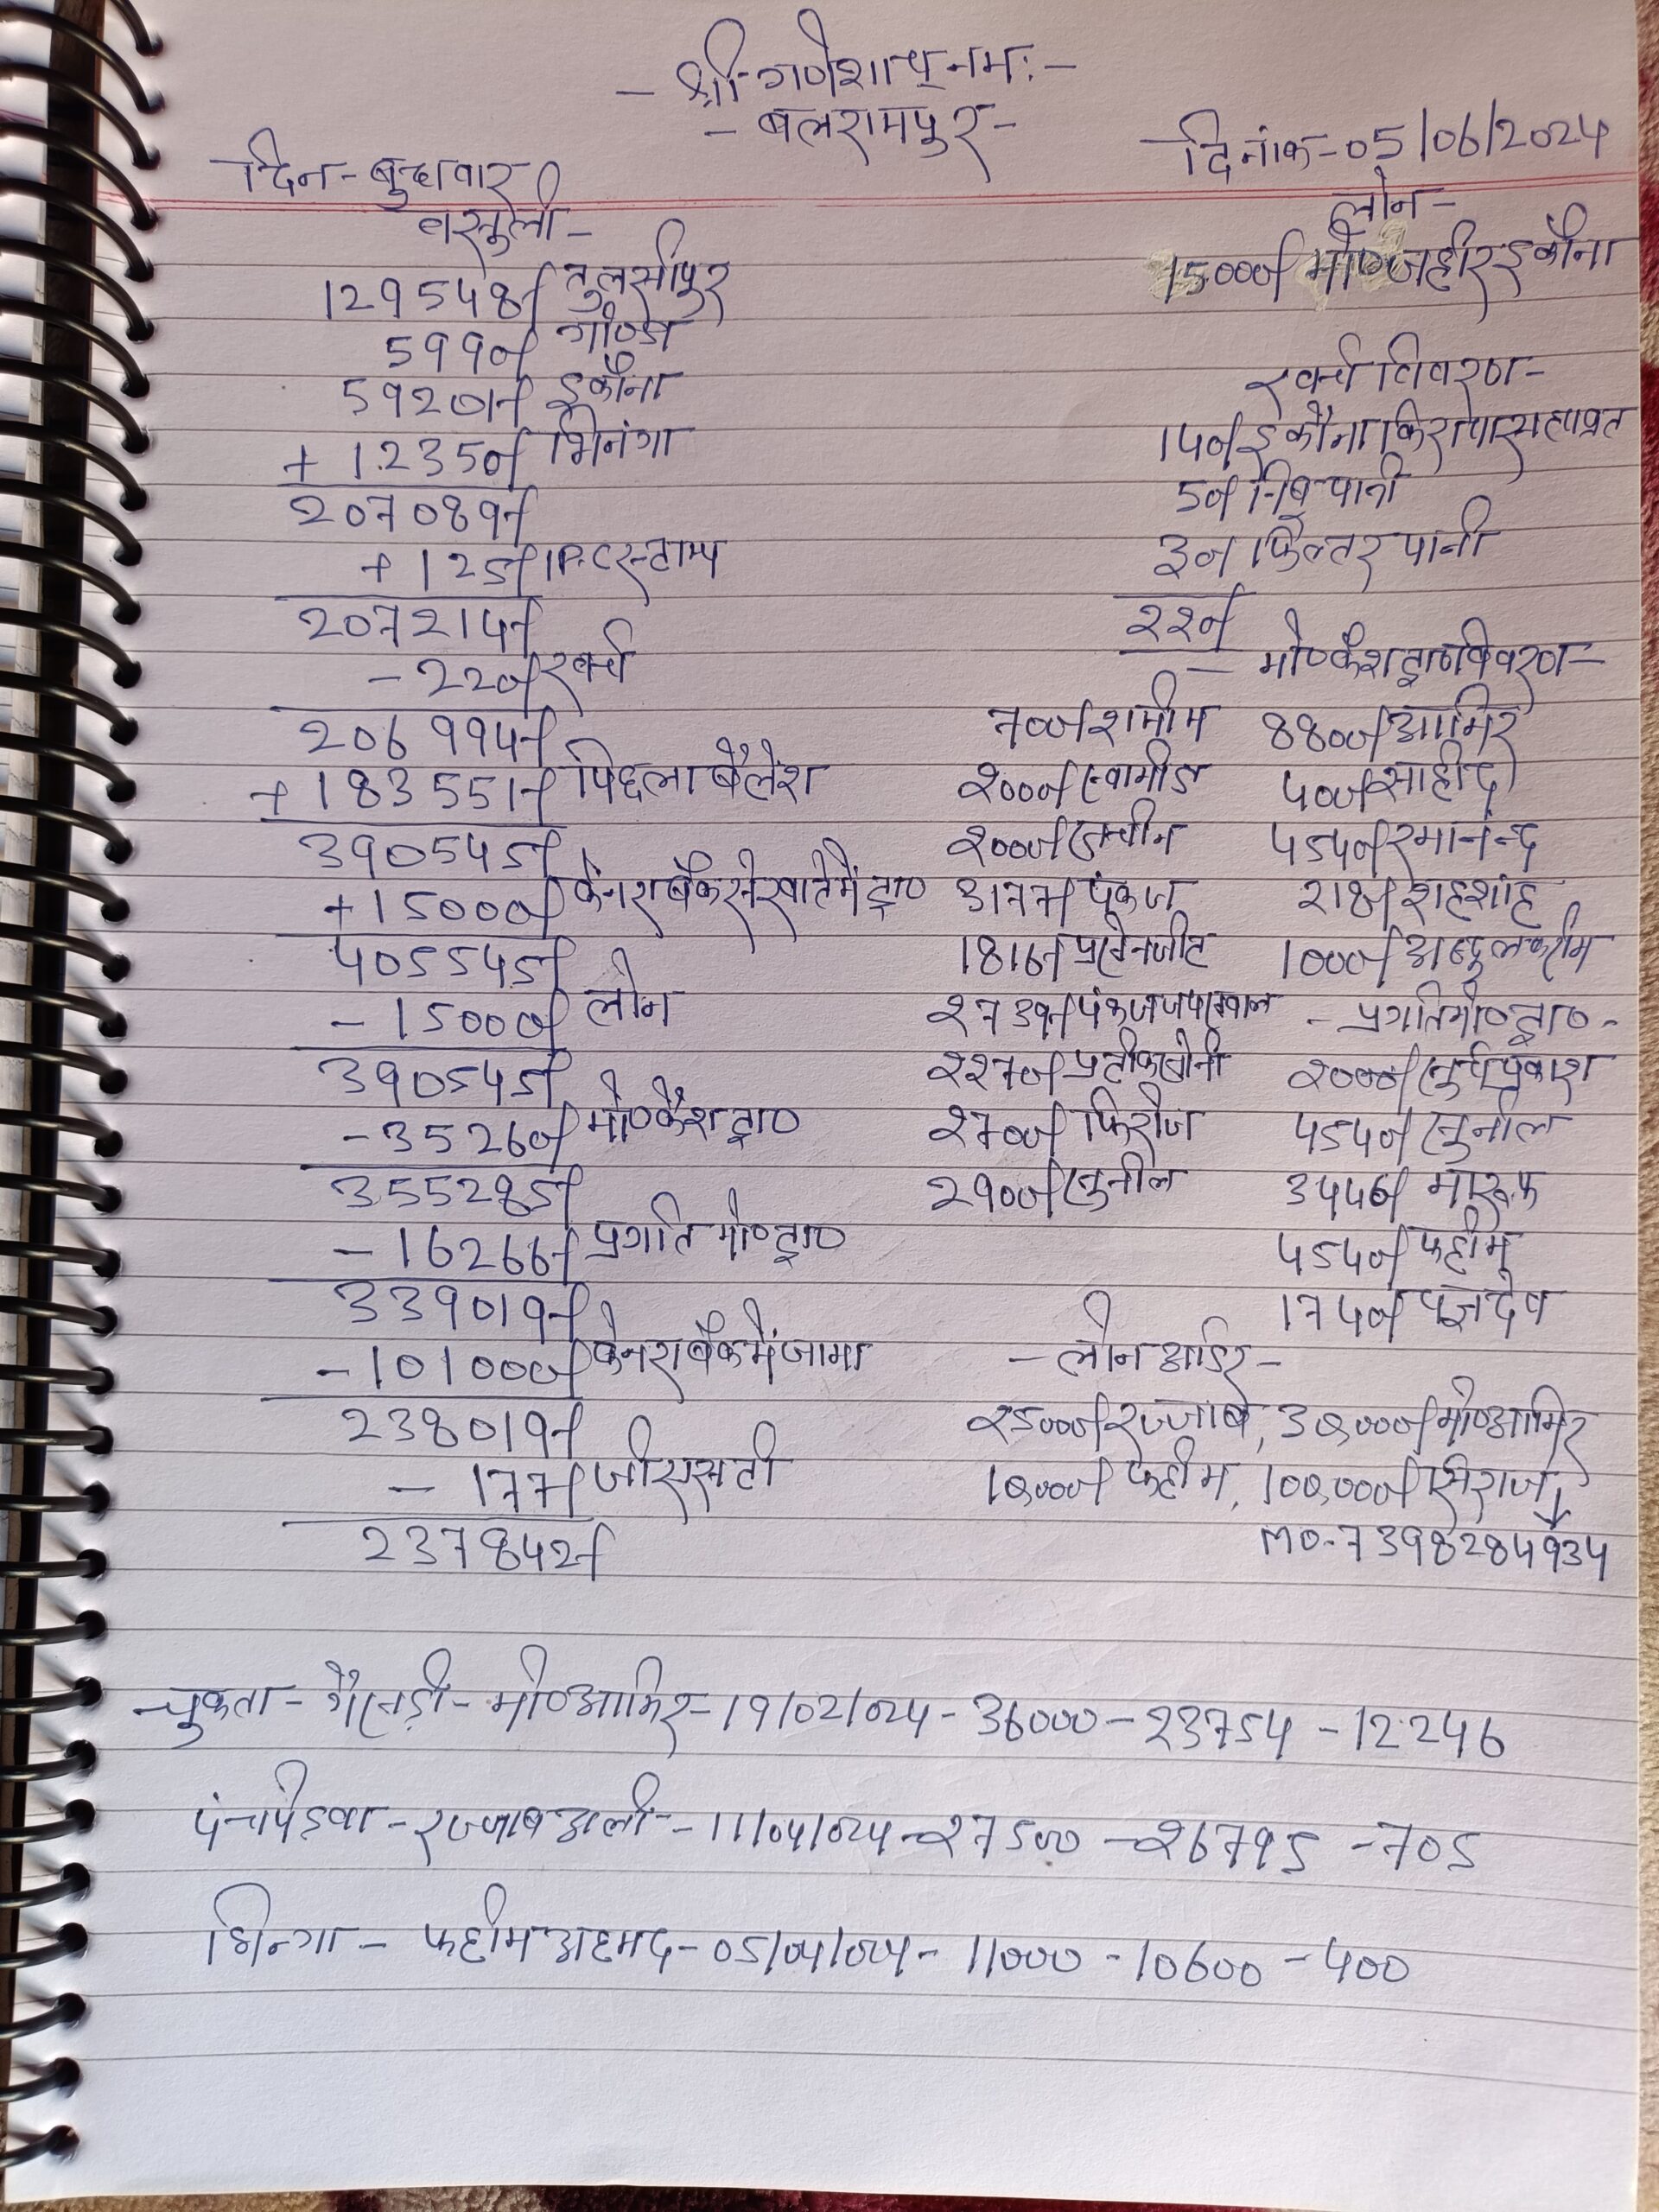 - श्री गणेशाय् नमः -
- बलरामपुर -
दिन - बुधवार
दिनांक - 05/06/2024
वसूली -
129548/- तुलसीपुर
5990/- गोण्डा
59201/- इकौना
+ 12350/- भिनंगा
207089/-
+ 125/- P.C स्टाम्प
207214/-
- 220/- खर्च
206994/-
+ 183551/- पिछला बैलेंश
390545/-
+ 15000/- केनरा बैंक से खाते में ट्रा०
405545/-
- 15000/- लोन
390545/-
- 35260/- मो० कैश ट्रा०
355285/-
- 16266/- प्रगति मो० ट्रा०
339019/-
- 101000/- केनरा बैंक में जामा
238019/-
- 177/- जीएसटी
237842/-
लोन -
15000/- मो० जहीर इकौना
खर्च विवरण -
140/- इकौना किराया
50/- निंबु पानी
30/- फिल्टर पानी
220/-
- मो० कैश ट्रा० विवरण -
700/- शमीम 8800/- आमिर
2000/- 400/- साहीद
2000/- सचीन 4540/- रमानन्द
3177/- पंकज 218/- शहशांह
1816/- प्रसेनजीत 1000/- अब्दुल करीम
2739/- पंकज जयसवाल - प्रगति मो० ट्रा० -
2270/- प्रतीक सोनी 2000/- सुर्यप्रकाश
2700/- फिरोज 4540/- सुनील
2900/- सुनील 3446/- मारूफ
4540/- फहीम
1740/- यज्ञदेव
- लोन आर्डर -
25000/- रज्जाब, 30,000/- मो० आमिर
10,000/- फहीम, 100,000/- सिराज ↓
mo. 7398284934
चुकता - गैसड़ी - मो० आमिर - 19/02/024 - 36000 - 23754 - 12246
पंचपेड़वा - रज्जाब अली - 11/04/024 - 27500 - 26795 - 705
भिन्गा - फहीम अहमद - 05/04/024 - 11000 - 10600 - 400